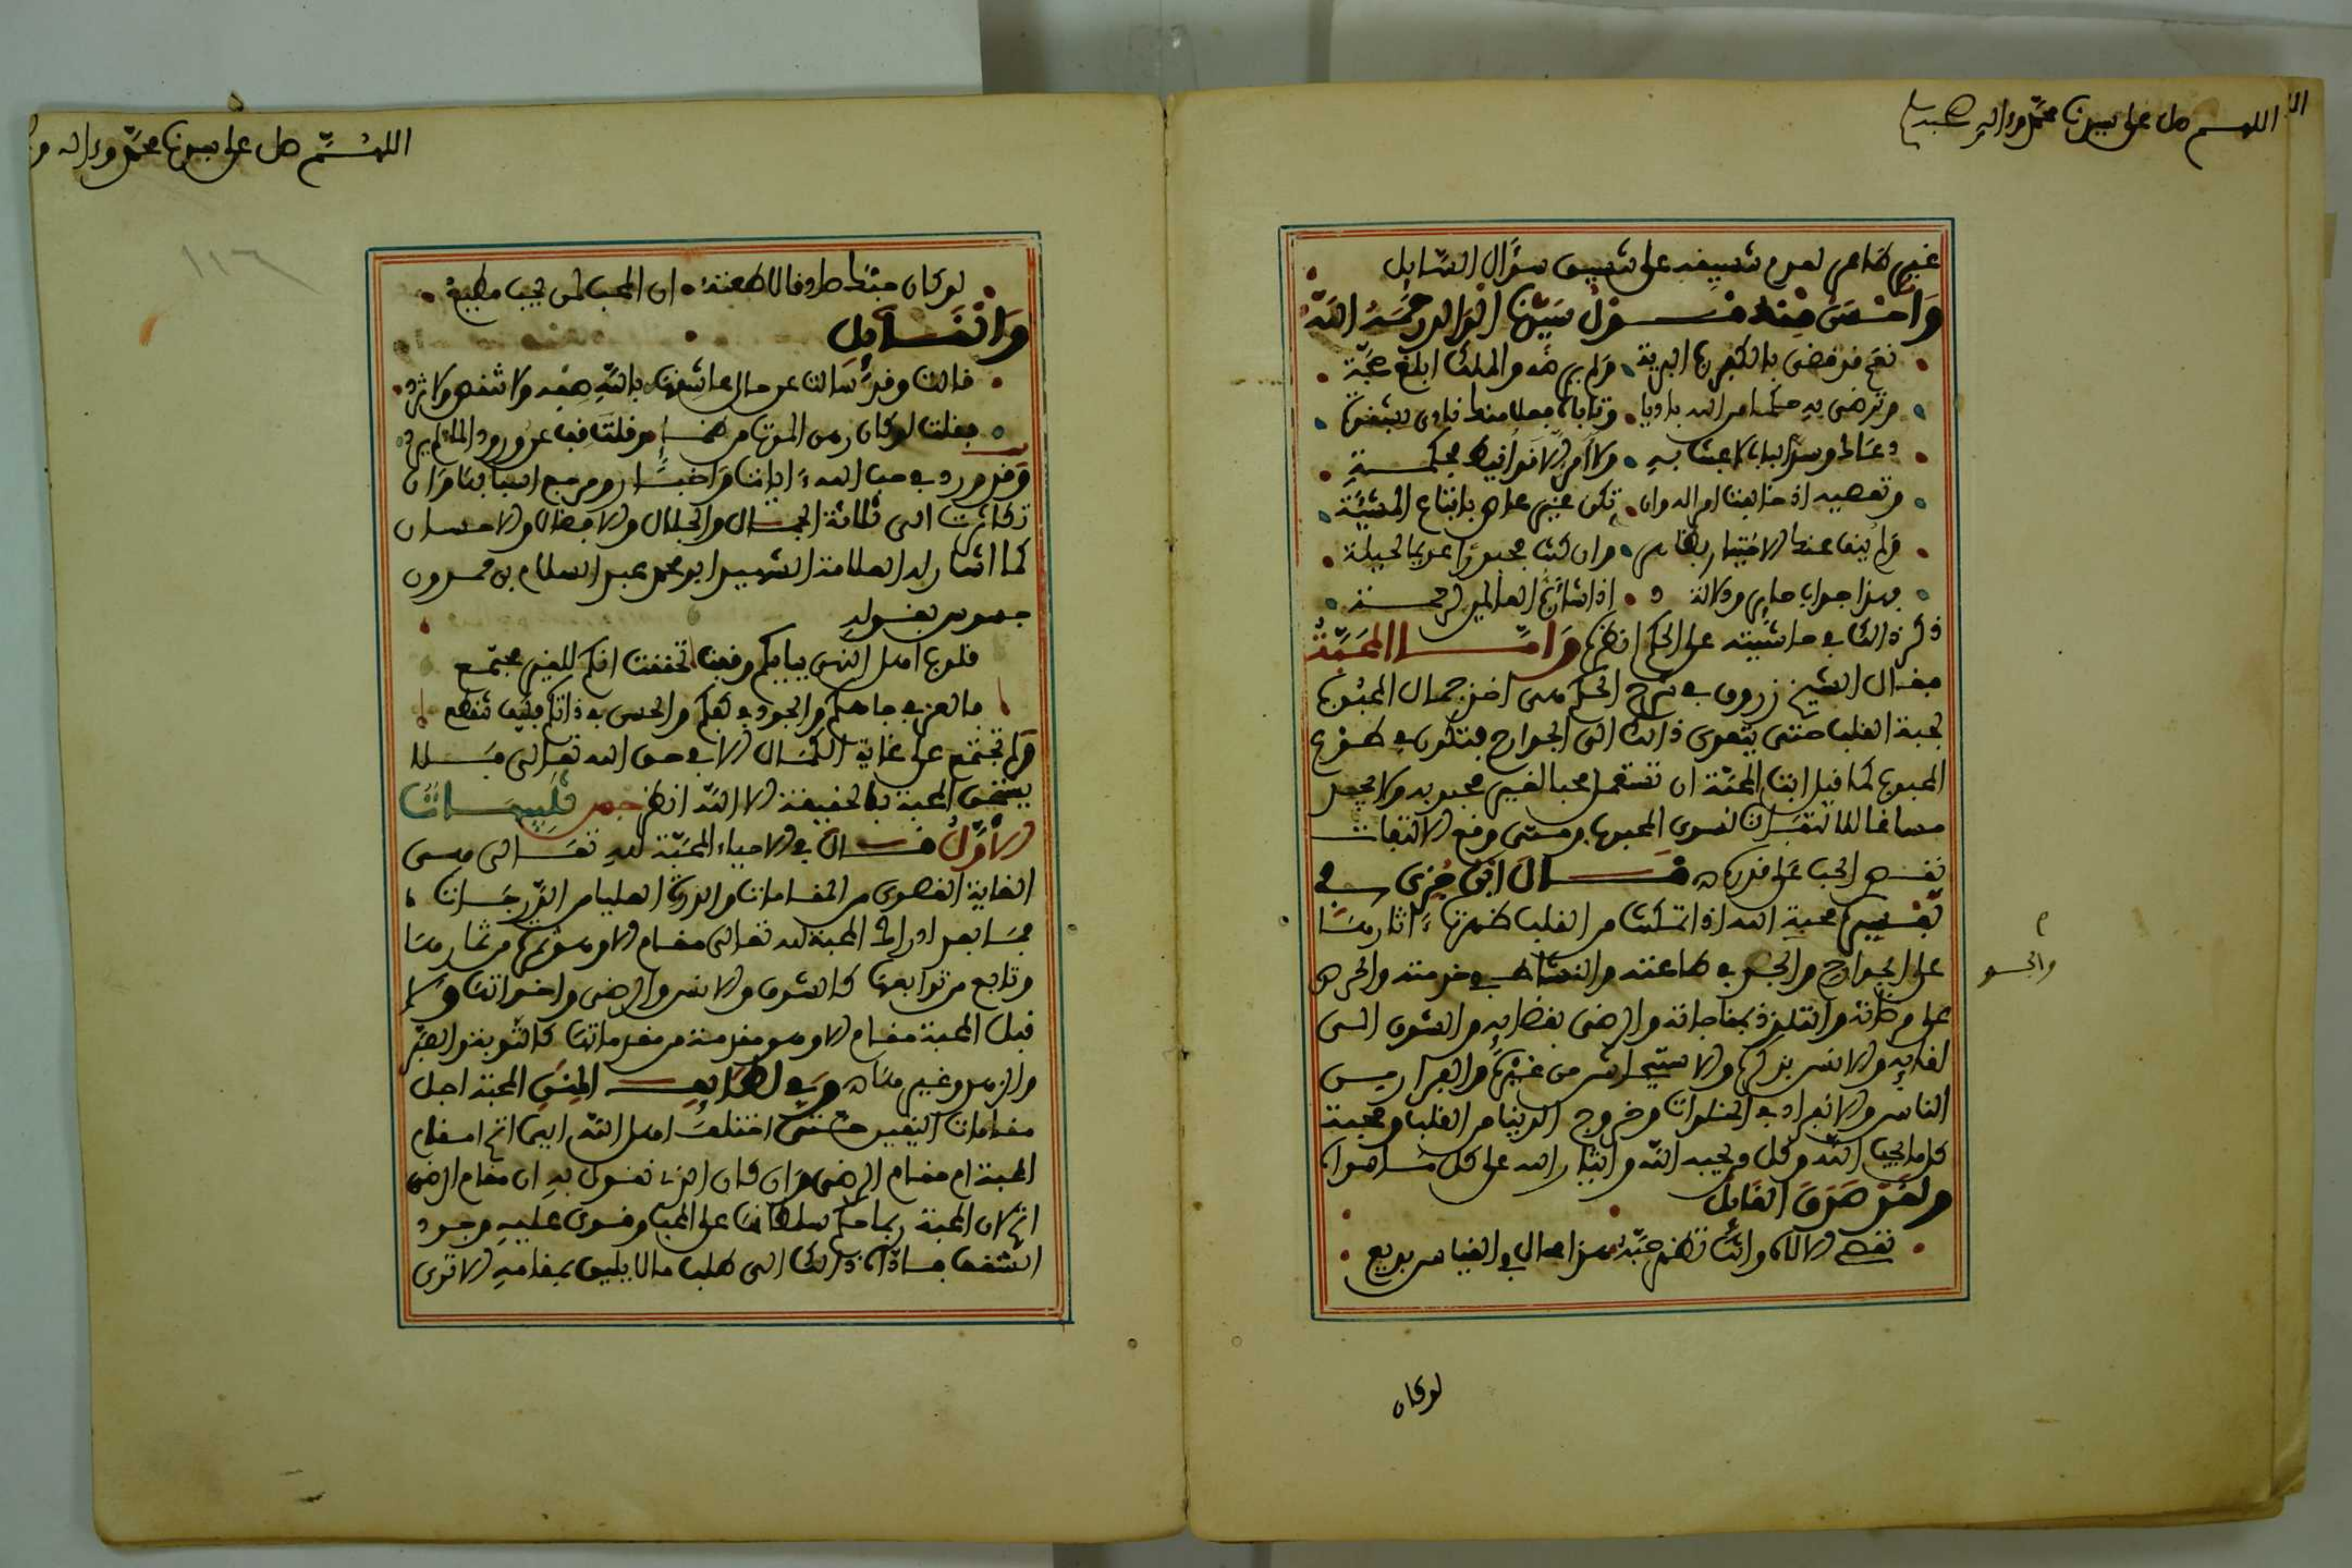 اللهم صل على سيدنا محمد وءاله وصحبه
غير ظاهر لعدم تسييفه على تسييف سؤال السايل
وأحسن منه قول سيدنا الوالد رحمه الله
نعم قد قضى بالكفر رب البرية ولم يرضه والملك أبلغ حجة
وترضى به
دعاك وسد الباب لا عبثا به ولا أمر إلا قد أتيك بحكمة
وتعصيه إذ خالفت أمر اله وان تكن غير عاص باتباع المشيئة
ولم ينف عنك الاختيار بظاهر وان كنت مجبورا عديم الحيلة
فهذا جواب جابر ودلالة إذا شاء رب العالمين لرحمة
ذكر ذالك في حاشيته على الحكم انظرها وأما المحبة
فقال الشيخ زروق في شرح الحكم هي أخذ جمال المحبوب
بحبة القلب حتى يتعدى ذالك الى الجوارح فتكون في طوع
المحبوب كما قيل ابت المحبة ان تستعمل محبا لغير محبوبه ولا يجد
مساغا للالتفات لسوى المحبوب ومتى وقع الالتفات
نقص الحب على قدره قال ابن جزي في
تفسيره محبة الله اذا تمكنت من القلب ظهرت ءاثارها
على الجوارح والجد في طاعته والنشاط في خدمته والحرص
على مرضاته والتلذذ بمناجاته والرضى بقضايه والشوق الى
لقايه والانس بذكره والاستيحاش من غيره والفرار من
الناس والانفراد في الخلوات وخروج الدنيا من القلب ومحبة
كل ما يحب الله وكل من يحبه الله وايثار الله على كل ما سواه
ولقد صدق القايل
تعصي الاله وانت تظهر حبه هذا محال في القياس بديع
لوكان
اللهم صل على سيدنا محمد وءاله و
١١٦
لوكان حبك صادقا لاطعته ان المحب لمن يحب مطيع
والقايل
قالت وقد سألت عن حال عاشقها بالله صفه ولا تنقص ولا تزد
فقلت لوكان رهن الموت من ظمإ وقلت قف عن ورود الماء لم يرد
وقد ورد في حب الله ءايات واخبار ومرجع اسبابها وان
تكاثرت الى ثلاثة الجمال والجلال والافضال والاحسان
كما اشار له العلامة الشهير ابو محمد عبد السلام بن حمدون
جسوس بقوله
قلوب اهل النهى ببابكم وقفت تحققت انكم للغير مجتمع
فالعز في جاهكم والجود في كفكم والحسن في ذاتكم فكيف تنقطع
ولم تجتمع على غاية الكمال الا في حق الله تعالى فلا
يستحق المحبة بالحقيقة الا الله انظر تنبيهات
الأول قال في الاحياء المحبة لله تعالى هي
الغاية القصوى من المقامات والذروة العليا من الدرجات
فما بعد ادراك المحبة لله تعالى مقام الا وهو ثمرة من ثمارها
وتابع من توابعها كالشوق والانس والرضى واخواتها ولا
قبل المحبة مقام الا وهو مقدمة من مقدماتها كالتوبة والصبر
والزهد وغيرها وفي لطايف المنن المحبة اجل
مقامات اليقين حتى اختلف اهل الله ايما اتم امقام
المحبة ام مقام الرضى وان كان الذي نقول به ان مقام الرضى
اتم لان المحبة ربما حكم سلطانها على المحب وقوي عليه وجود
الشغف فاداه ذالك الى طلب ما لا يليق بمقامه الا ترى